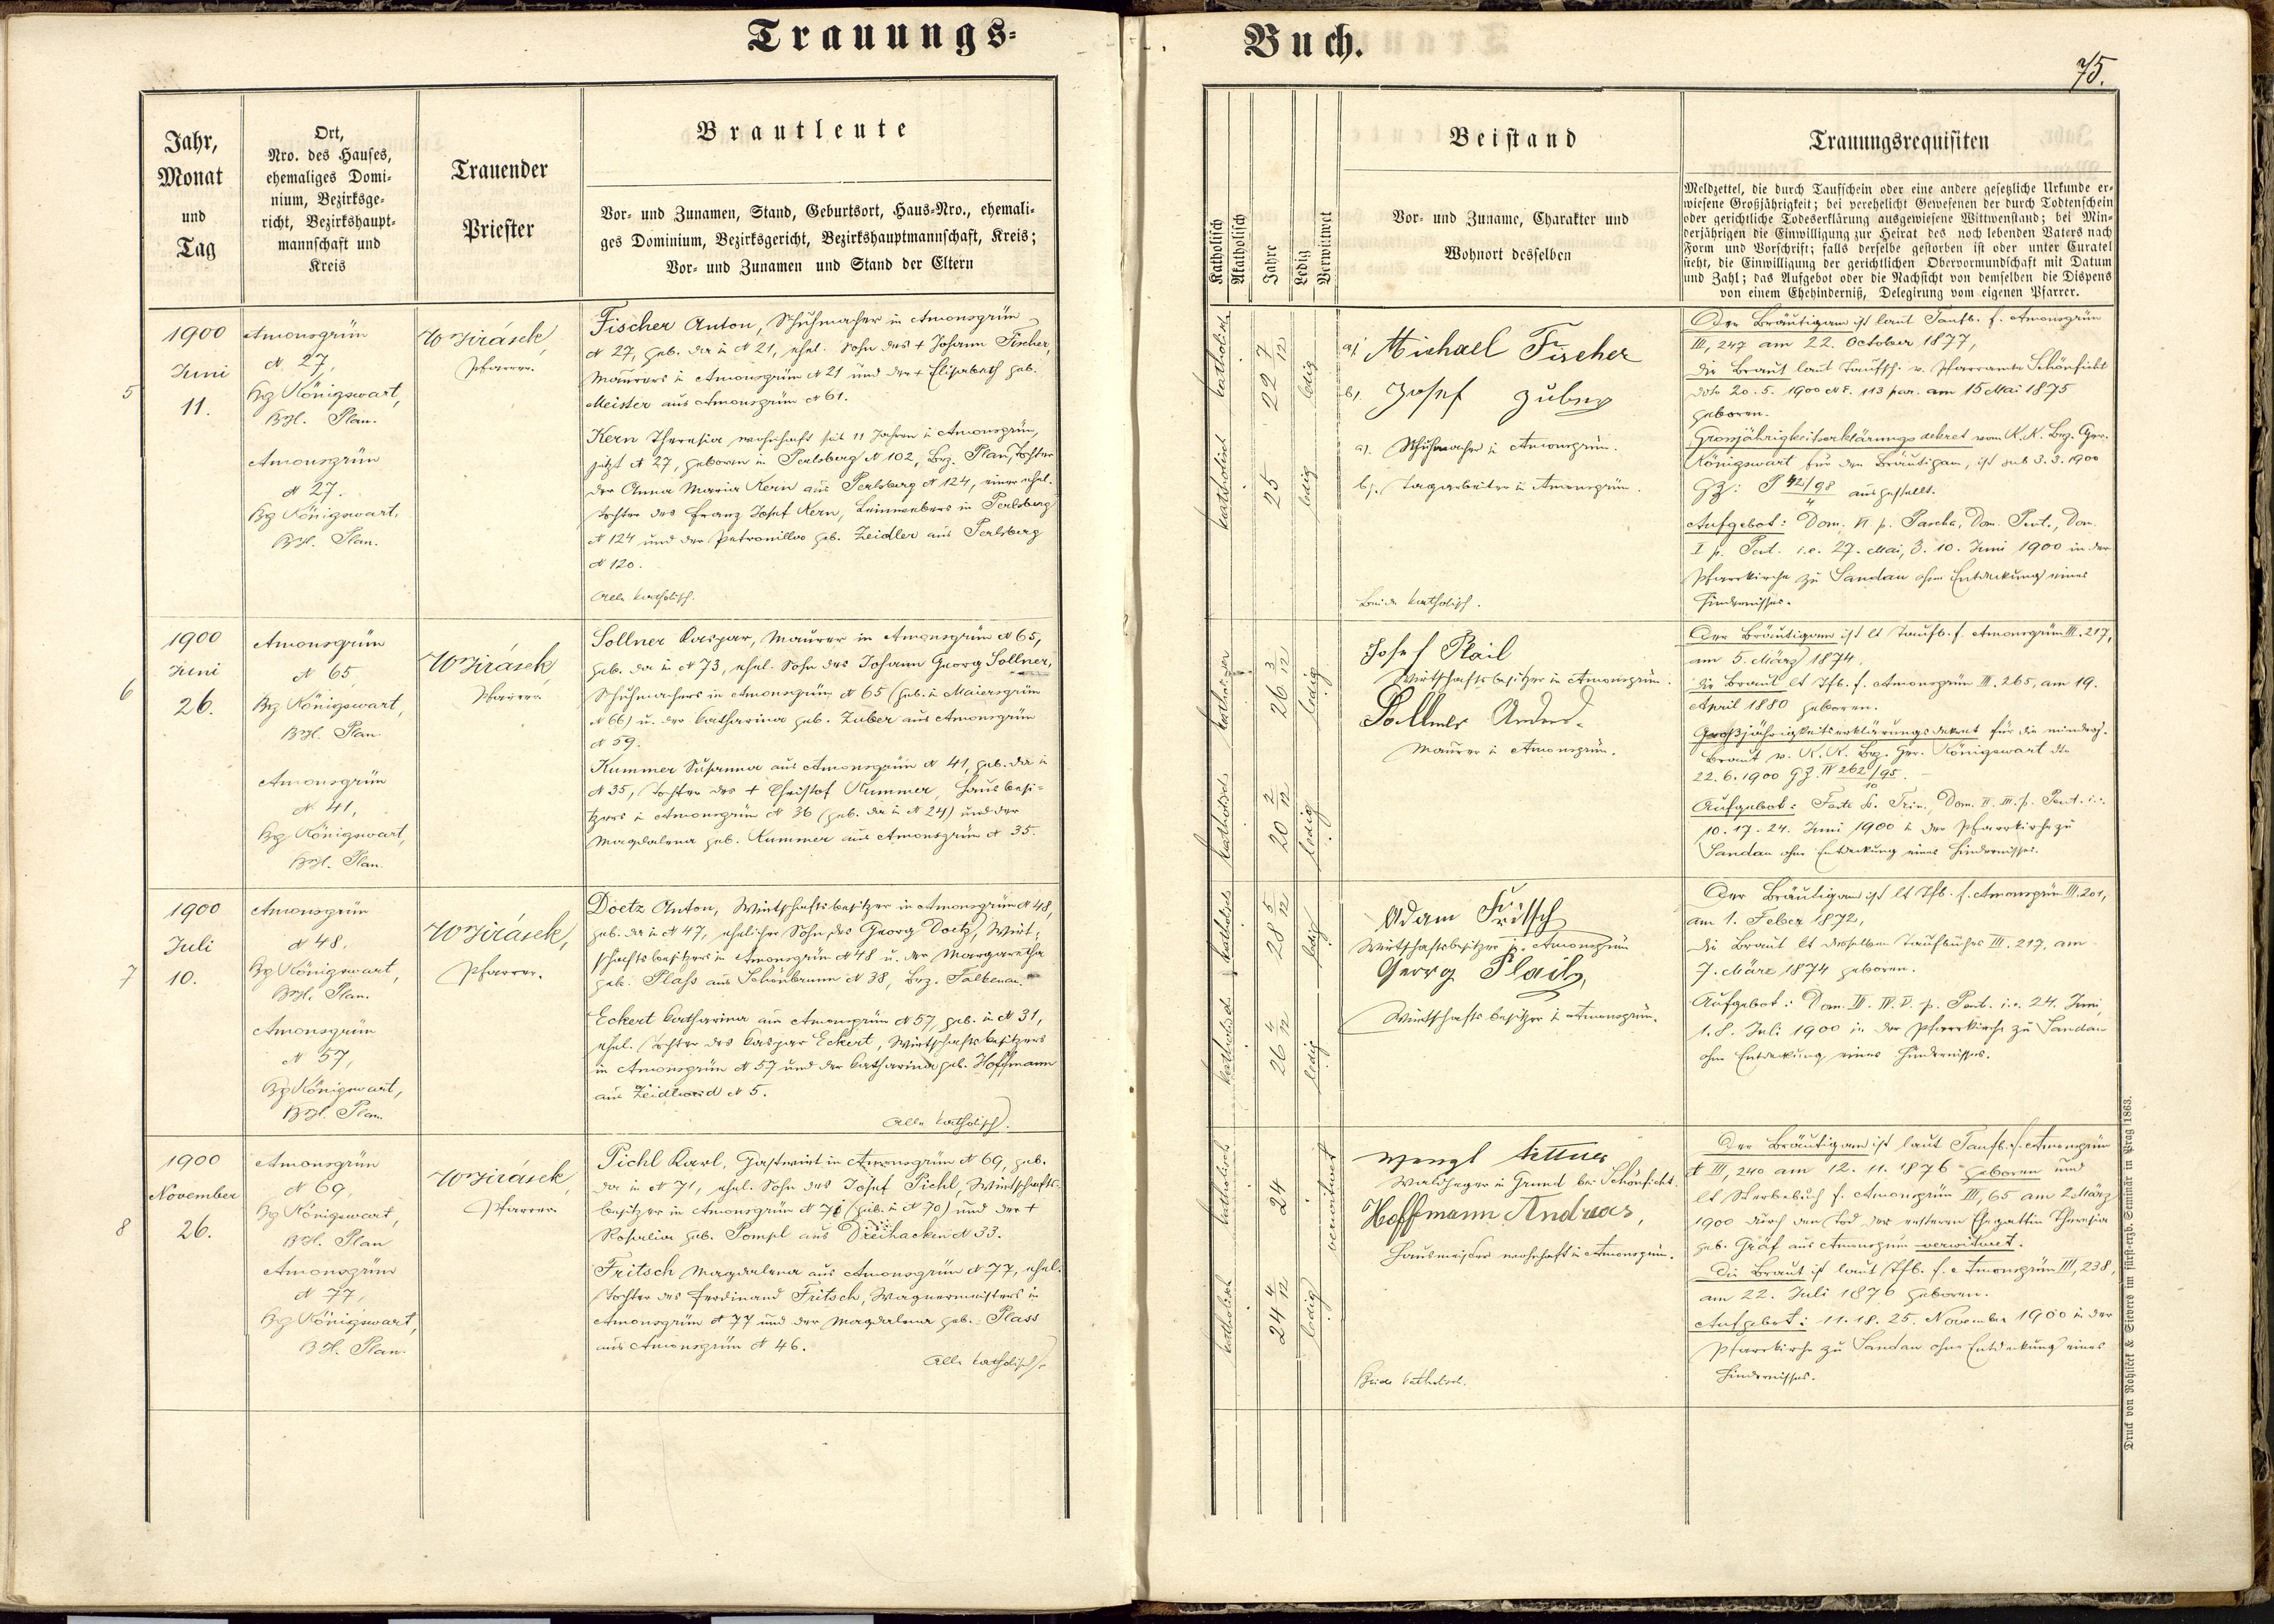 Trauungs=
Buch.
75.
Jahr,
Monat
und
Tag
Ort,
Nro. des Hauses,
ehemaliges Domi=
nium, Bezirksge=
richt, Bezirkshaupt=
mannschaft und
Kreis
Trauender
Priester
Brautleute
Vor= und Zunamen, Stand, Geburtsort, Haus=Nro., ehemali=
ges Dominium, Bezirksgericht, Bezirkshauptmannschaft, Kreis;
Vor= und Zunamen und Stand der Eltern
Katholisch
Akatholisch
Jahre
Ledig
Verwittwet
Beistand
Vor= und Zuname, Charakter und
Wohnort desselben
Trauungsrequisiten
Meldzettel, die durch Taufschein oder eine andere gesetzliche Urkunde er=
wiesene Großjährigkeit; bei verehelicht Gewesenen der durch Todtenschein
oder gerichtliche Todeserklärung ausgewiesene Wittwenstand; bei Min=
derjährigen die Einwilligung zur Heirat des noch lebenden Vaters nach
Form und Vorschrift; falls derselbe gestorben ist oder unter Curatel
steht, die Einwilligung der gerichtlichen Obervormundschaft mit Datum
und Zahl; das Aufgebot oder die Nachsicht von demselben die Dispens
von einem Ehehinderniß, Delegirung vom eigenen Pfarrer.
5
1900
Juni
11.
Amonsgrün
N 27,
Bz Königswart,
BH. Plan.
Amonsgrün
N 27.
Bz Königswart,
BH. Plan.
W Jirásek,
Pfarrer.
Fischer Anton, Schuhmacher in Amonsgrün
N 27, geb. da in N 21, ehel. Sohn des + Johann Fischer,
Maurers in Amonsgrün N 21 und der + Elisabeth geb.
Meister aus Amonsgrün N 61.
Kern Theresia wohnhaft seit 11 Jahren in Amonsgrün,
jetzt N 27, geboren in Perlsberg N 102, Bez. Plan, Tochter
der Anna Maria Kern aus Perlsberg N 124, einer ehel.
Tochter des Franz Josef Kern, Leinwebers in Perlsberg
N 124 und der Petronilla geb. Zeidler aus Perlsberg
N 120.
Alle katholisch.
katholisch
22 7/12
ledig
katholisch
25
ledig
a). Michael Fischer
b). Josef Zuber
a). Schuhmacher in Amonsgrün.
b). Tagarbeiter in Amonsgrün.
Beide katholisch.
Der Bräutigam ist laut Taufb. f. Amonsgrün
III, 247 am 22. October 1877,
die Braut laut Taufsch. v. Pfarramte Schönficht
ddto 20. 5. 1900 NE. 113 par. am 15 Mai 1875
geboren.
Grossjährigkeitserklärungsdekret vom K. K. Bez. Ger.
Königswart für den Bräutigam, ist sub 3. 3. 1900
GZ: P 42/98 ausgestellt.
4
Aufgebot: Dom. VI p. Pascha, Dom. Pent., Dom.
I p. Pent. i. e. 27. Mai, 3. 10. Juni 1900 in der
Pfarrkirche zu Sandau ohne Entdeckung eines
Hindernisses.
6
1900
Juni
26.
Amonsgrün
N 65
Bz Königswart,
BH. Plan.
Amonsgrün
N 41,
Bz. Königswart,
BH. Plan.
W Jirásek,
Pfarrer.
Sollner Kaspar, Maurer in Amonsgrün N 65,
geb. da in N 73, ehel. Sohn des Johann Georg Sollner,
Schuhmachers in Amonsgrün N 65 (geb. in Maiersgrün
N 66) u. der Katharina geb. Zuber aus Amonsgrün
N 59.
Kummer Susanna aus Amonsgrün N 41, geb. da in
N 35, Tochter des + Christof Kummer, Hausbesi=
tzers in Amonsgrün N 36 (geb. da in N 24) und der
Magdalena geb. Kummer aus Amonsgrün N 35.
26 3/12
ledig
katholisch
20 2/12
ledig
Josef Plail
Wirtschaftsbesitzer in Amonsgrün.
Sollner Andres.
Maurer in Amonsgrün.
Der Bräutigam ist lt Taufb. f. Amonsgrün III. 217,
am 5. März 1874,
die Braut lt Tfb. f. Amonsgrün III. 265, am 19.
April 1880 geboren.
Großjährigkeitserklärungsdekret für die minderj.
Braut v. K. K. Bez. Ger. Königswart dto
22. 6. 1900 GZ. IV 262/95.
10
Aufgebot: Festo S. Trin., Dom. II. III. p. Pent. i. e.
10. 17. 24. Juni 1900 in der Pfarrkirche zu
Sandau ohne Entdeckung eines Hindernisses.
7
1900
Juli
10.
Amonsgrün
N 48.
Bz Königswart,
BH. Plan.
Amonsgrün
N 57,
Bz Königswart,
BH. Plan.
W Jirásek,
Pfarrer.
Doetz Anton, Wirtschaftsbesitzer in Amonsgrün N 48,
geb. da in N 47, ehelicher Sohn des Georg Doetz, Wirt=
schaftsbesitzers in Amonsgrün N 48 u. der Margaretha
geb. Plass aus Schönbrunn N 38, Bez. Falkenau.
Eckert Katharina aus Amonsgrün N 57, geb. in N 31,
ehel. Tochter des Kaspar Eckert, Wirtschaftsbesitzers
in Amonsgrün N 57 und der Katharina geb. Hoffmann
aus Zeidlweid N 5.
Alle katholisch.
katholisch
28 5/12
ledig
katholisch.
26 4/12
ledig
Adam Fritsch
Wirtschaftsbesitzer in Amonsgrün
Georg Plail,
Wirtschaftsbesitzer in Amonsgrün.
Der Bräutigam ist lt Tfb. f. Amonsgrün III. 201,
am 1. Feber 1872,
die Braut lt desselben Taufbuches III. 217, am
7. März 1874 geboren.
Aufgebot: Dom. III. IV. V. p. Pent. i. e. 24. Juni,
1. 8. Juli 1900 in der Pfarrkirche zu Sandau
ohne Entdeckung eines Hindernisses.
8
1900
November
26.
Amonsgrün
N 69.
Bz Königswart,
BH. Plan
Amonsgrün
N 77,
Bz Königswart,
BH. Plan.
W Jirásek,
Pfarrer.
Pichl Karl, Gastwirt in Amonsgrün N 69, geb.
da in N 71, ehel. Sohn des Josef Pichl, Wirtschafts=
besitzer in Amonsgrün N 71 (geb. in N 70) und der +
Rosalia geb. Pompl aus Dreihacken N 33.
Fritsch Magdalena aus Amonsgrün N 77, ehel.
Tochter des Ferdinand Fritsch, Wagnermeisters in
Amonsgrün N 77 und der Magdalena geb. Plass
aus Amonsgrün N 46.
Alle katholisch.
katholisch
24
verwitwet
katholisch
24 4/12
ledig
Wenzl
Waldheger in Grund bei Schönficht.
Hoffmann Andreas,
Hausmeister wohnhaft in Amonsgrün.
Beide katholisch.
Der Bräutigam ist laut Taufb. f. Amonsgrün
N III, 240 am 12. 11. 1876 geboren und
lt Sterbebuch f. Amonsgrün III, 65 am 2 März
1900 durch den Tod der ersteren Ehegattin Theresia
geb. Gräf aus Amonsgrün verwitwet.
Die Braut ist laut Tfb. f. Amonsgrün III, 238,
am 22. Juli 1876 geboren.
Aufgebot: 11. 18. 25. November 1900 in der
Pfarrkirche zu Sandau ohne Entdeckung eines
Hindernisses.
Druck von Rohliček & Sievers im fürst-erzb. Seminar in Prag 1863.